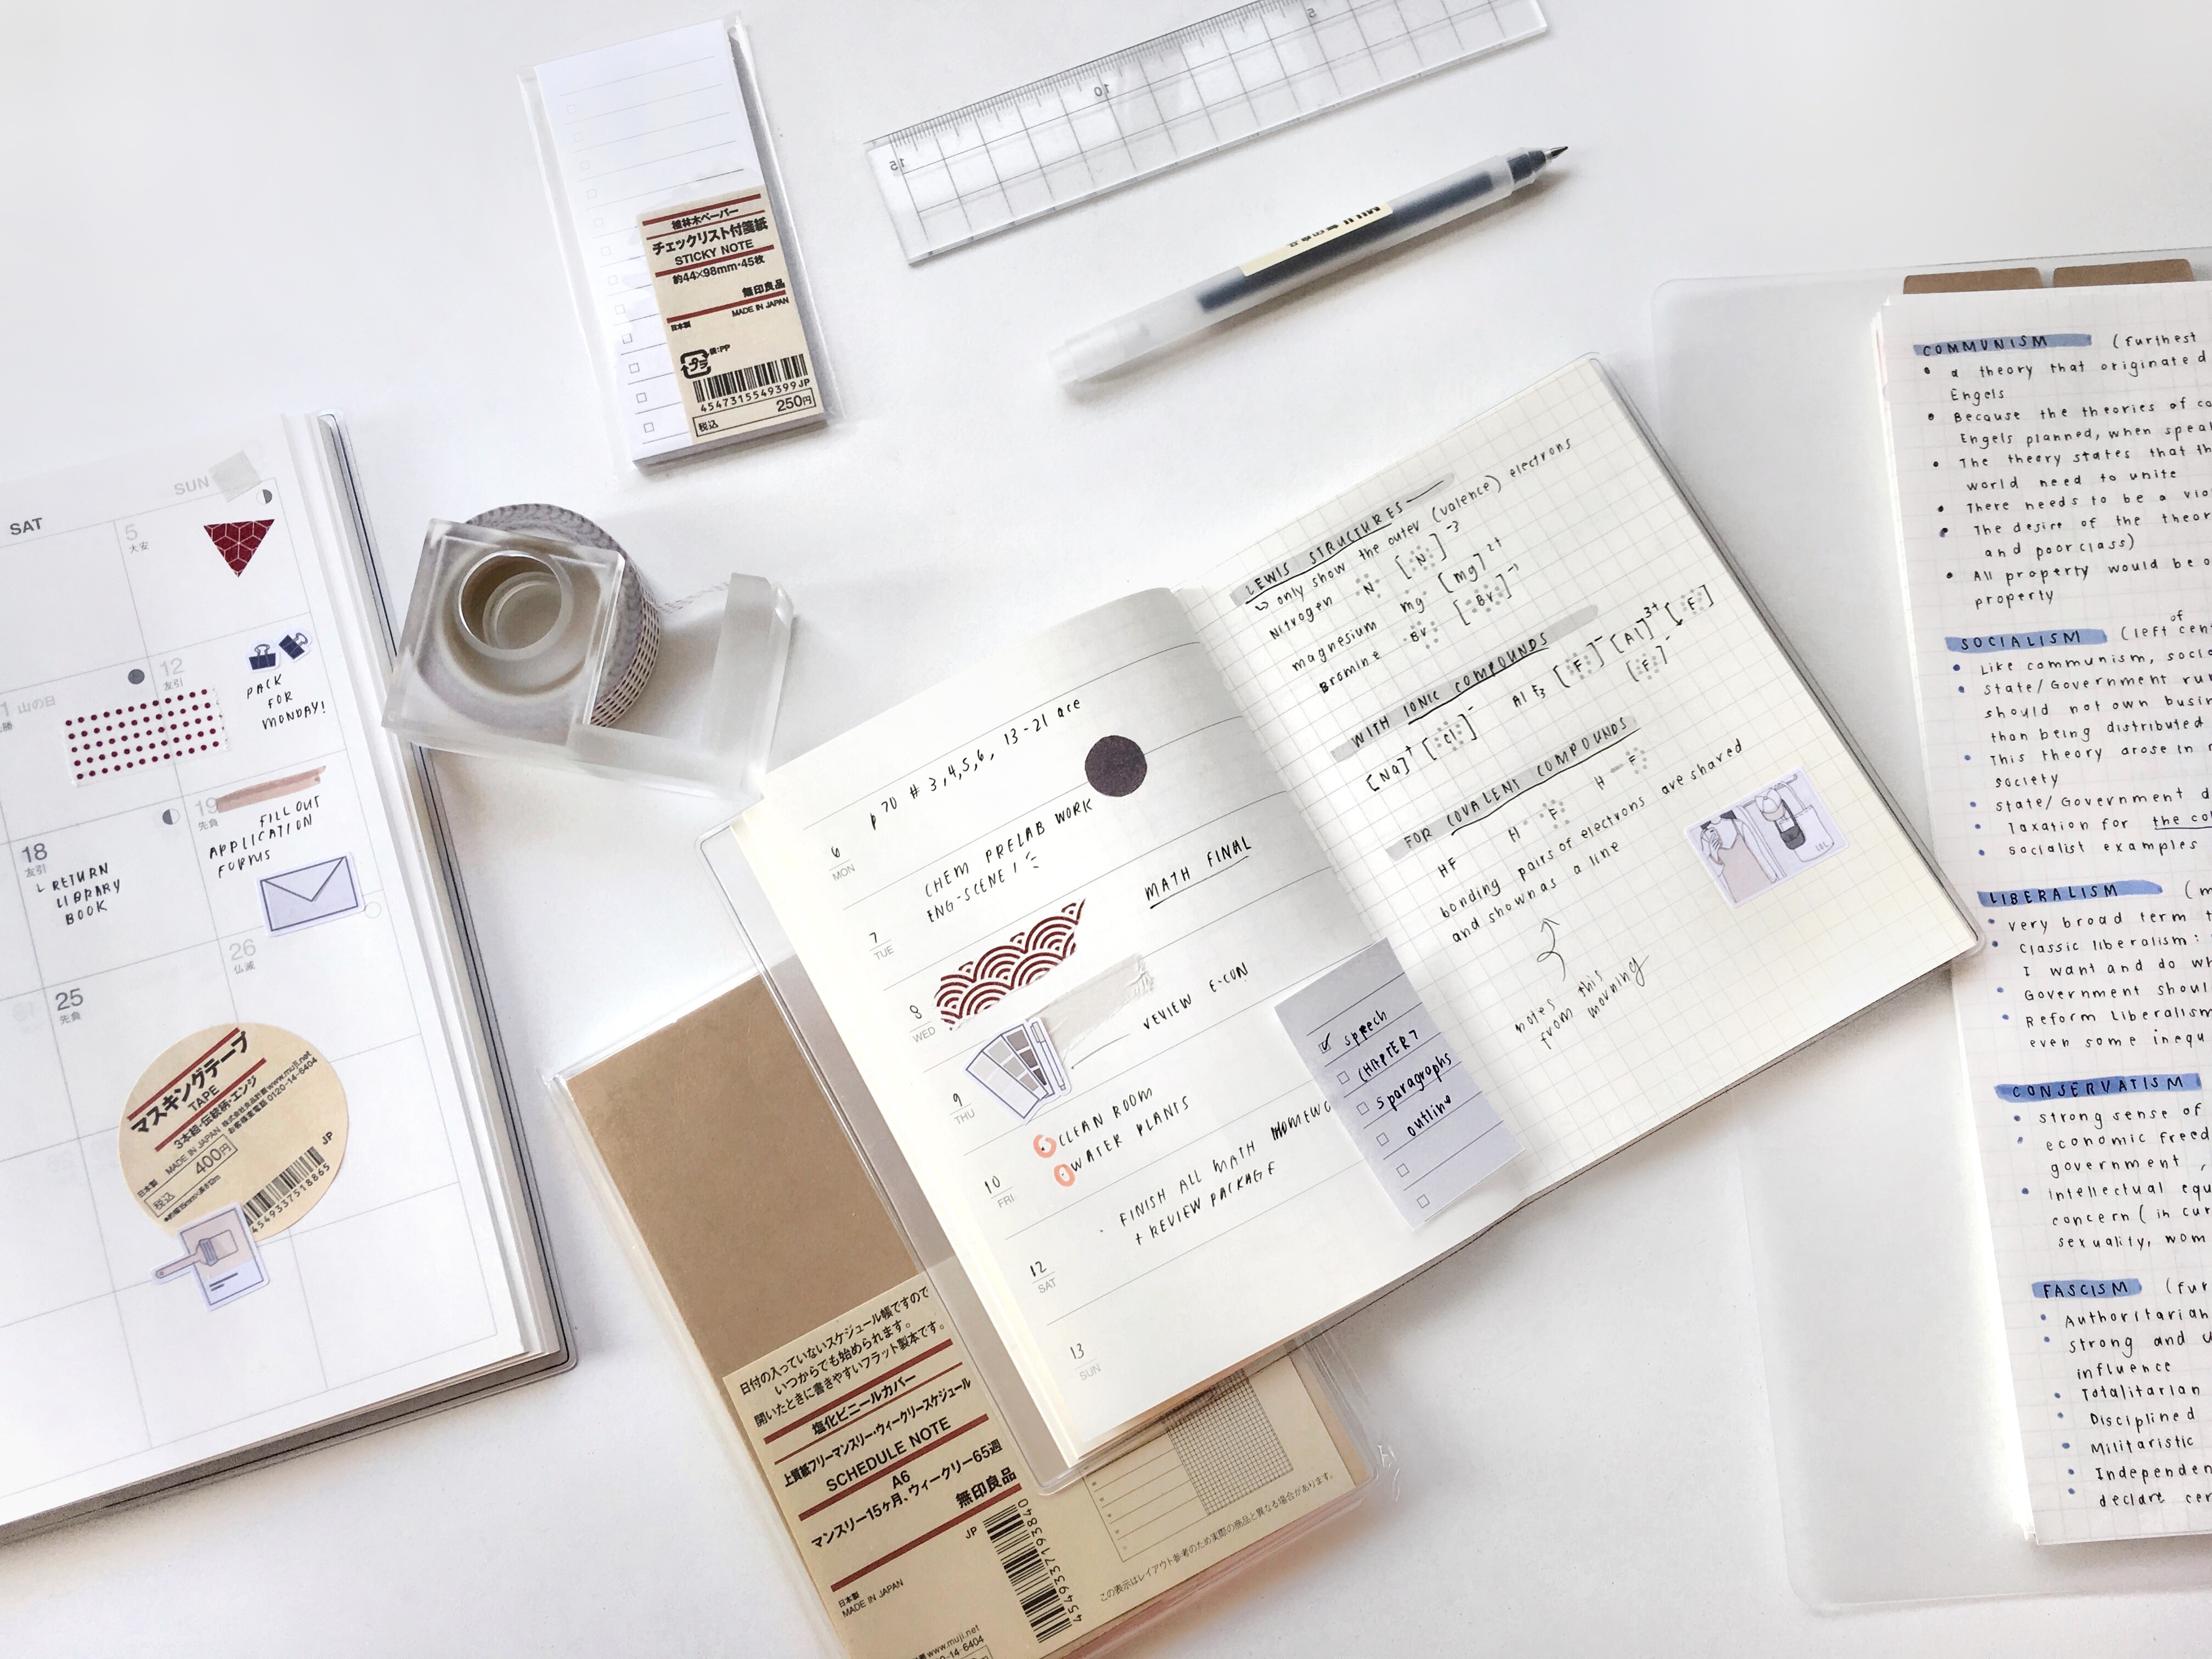 植林木ペーパー
チェックリスト付箋紙
STICKY NOTE
約44×98mm・45枚
無印良品
日本製
MADE IN JAPAN
袋:PP
プラ
4547315549399JP
税込 250円
15
10
5
MUJI 無印良品
SAT
SUN
5
大安
山の日
12
友引
PACK
FOR
MONDAY!
18
友引
RETURN
LIBRARY
BOOK
19
先負
FILL OUT
APPLICATION
FORMS
25
先負
26
仏滅
マスキングテープ
TAPE
3本組・伝統柄・エンジ
MADE IN JAPAN 株式会社良品計画 www.muji.net
お客様室電話 0120-14-6404
日本製
税込 400円
JP
4549337518865
p 70 # 3,4,5,6, 13-21 are
6
MON
CHEM PRELAB WORK
ENG-SCENE 1
7
TUE
MATH FINAL
8
WED
REVIEW E-CON
9
THU
CLEAN ROOM
WATER PLANTS
10
FRI
FINISH ALL MATH
+ REVIEW PACKAGE
12
SAT
13
SUN
speech
CHAPTER 7
5 paragraphs
outline
LEWIS STRUCTURES
↳ only show the outer (valence) electrons
Nitrogen N [N] -3
magnesium mg [mg] 2+
Bromine Br [Br] -1
WITH IONIC COMPOUNDS
[Na]+ [Cl]- AlF3 [F]- [Al]3+ [F]-
[F]-
FOR COVALENT COMPOUNDS
HF H F H—F
bonding pairs of electrons are shared
and shown as a line
notes
from this
morning
日付の入っていないスケジュール帳ですので
いつからでも始められます。
開いたときに書きやすいフラット製本です。
塩化ビニールカバー
上質紙フリーマンスリー・ウィークリースケジュール
SCHEDULE NOTE
A6
マンスリー15ヶ月、ウィークリー65週
無印良品
JP
日本製
MADE IN JAPAN
4549337193840
www.muji.net
0-14-6404
この表示はレイアウト参考のため実際の商品と異なる場合があります。
COMMUNISM (furthest
a theory that originated
Engels
Because the theories of
Engels planned, when
The theory states that
world need to unite
There needs to be a
The desire of the
and poor class)
All property would be
property
SOCIALISM (left of
Like communism,
State/Government
should not own
than being distributed
This theory arose in
society
State/Government
Taxation for the
socialist examples
LIBERALISM
very broad term
Classic liberalism:
I want and do
Government
Reform Liberalism
even some
CONSERVATISM
strong sense of
economic
government,
intellectual
concern ( in
sexuality,
FASCISM
Authoritarian
strong and
influence
Totalitarian
Disciplined
Militaristic
declare